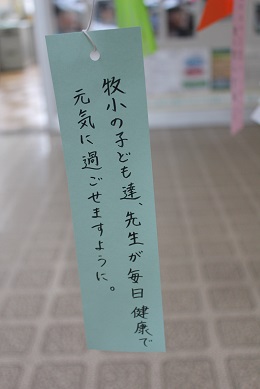 牧小の子ども達、先生が毎日健康で
元気に過ごせますように。